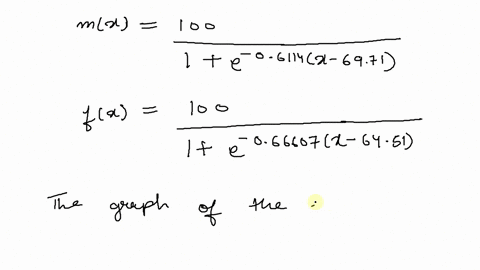 m(x) = 100 / 1 + e^-0.6114(x-69.71)
f(x) = 100 / 1+ e^-0.66607(x-64.51)
The graph of the